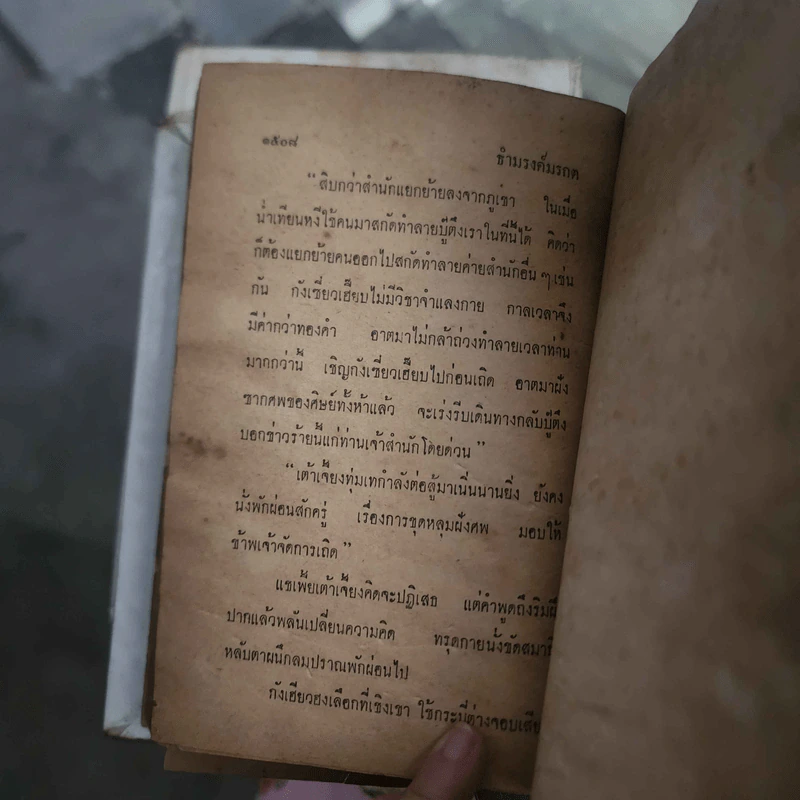 ๑๕๐๘
ธำมรงค์มรกต
“สิบกว่าสำนักแยกย้ายลงจากภูเขา ในเมื่อ
น้ำเทียนหงีใช้คนมาสกัดทำลายบู๊ตึ๊งเราในที่นี้ได้ คิดว่า
ก็ต้องแยกย้ายคนออกไปสกัดทำลายค่ายสำนักอื่น ๆ เช่น
กัน กังเซี่ยวเฮี๊ยบไม่มีวิชาจำแลงกาย กาลเวลาจึง
มีค่ากว่าทองคำ อาตมาไม่กล้าถ่วงทำลายเวลาท่าน
มากกว่านี้ เชิญกังเซี่ยวเฮี๊ยบไปก่อนเถิด อาตมาฝัง
ซากศพของศิษย์ทั้งห้าแล้ว จะเร่งรีบเดินทางกลับบู๊ตึ๊ง
บอกข่าวร้ายนี้แก่ท่านเจ้าสำนักโดยด่วน”
“เต้าเจี๊ยงทุ่มเทกำลังต่อสู้มาเนิ่นนานยิ่ง ยังคง
นั่งพักผ่อนสักครู่ เรื่องการขุดหลุมฝังศพ มอบให้
ข้าพเจ้าจัดการเถิด”
แชเพ้ยเต้าเจี๊ยงคิดจะปฏิเสธ แต่คำพูดถึงริมฝี
ปากแล้วพลันเปลี่ยนความคิด ทรุดกายนั่งขัดสมาธิ
หลับตาผนึกลมปราณพักผ่อนไป
กังเฮียวฮงเลือกที่เชิงเขา ใช้กระบี่ต่างจอบเสีย